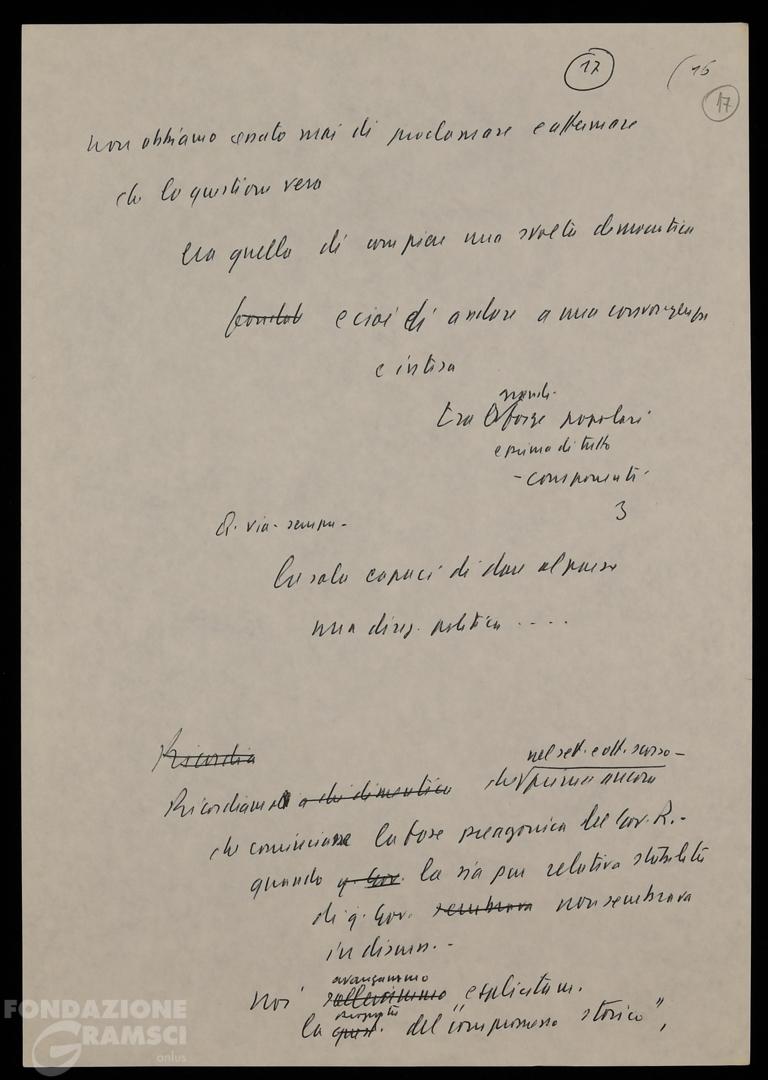 17
15
17
non abbiamo cessato mai di proclamare e affermare
che la questione vera
era quella di compiere una svolta democratica
e cioè di andare a una convergenza
e intesa
grandi
tra le forze popolari
e prima di tutto
- componenti
3
Q. via sempre -
la sola capaci di dare al paese
una direz. politica ....
Ricordia
nel sett. e ott. scorso -
Ricordiamo a chi dimentica che prima ancora
che cominciasse la fase preagonica del Gov. R. -
quando q. Gov. la sia pur relativa stabilità
di q. Gov. sembrava non sembrava
in discuss. -
avanzammo
noi sollevammo esplicitam.
proposta
la quest. del "compromesso storico",
FONDAZIONE
GRAMSCI
onlus